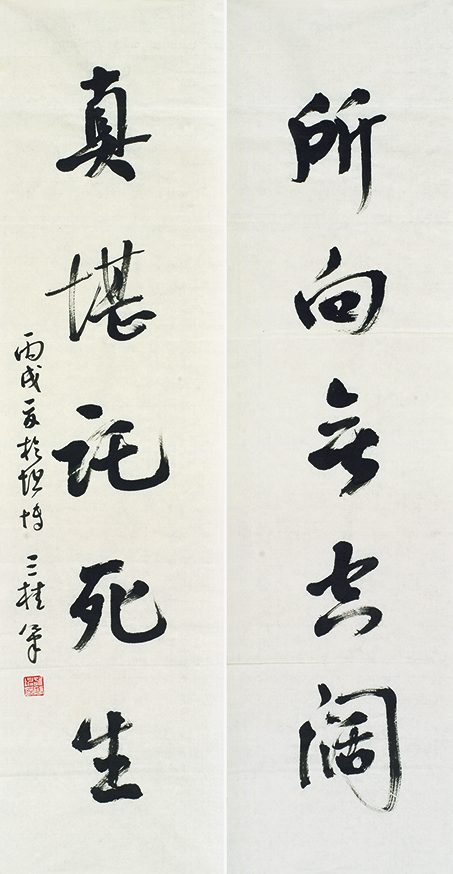 所向无空阔
真堪託死生
丙戌夏於坦博 三桂笔